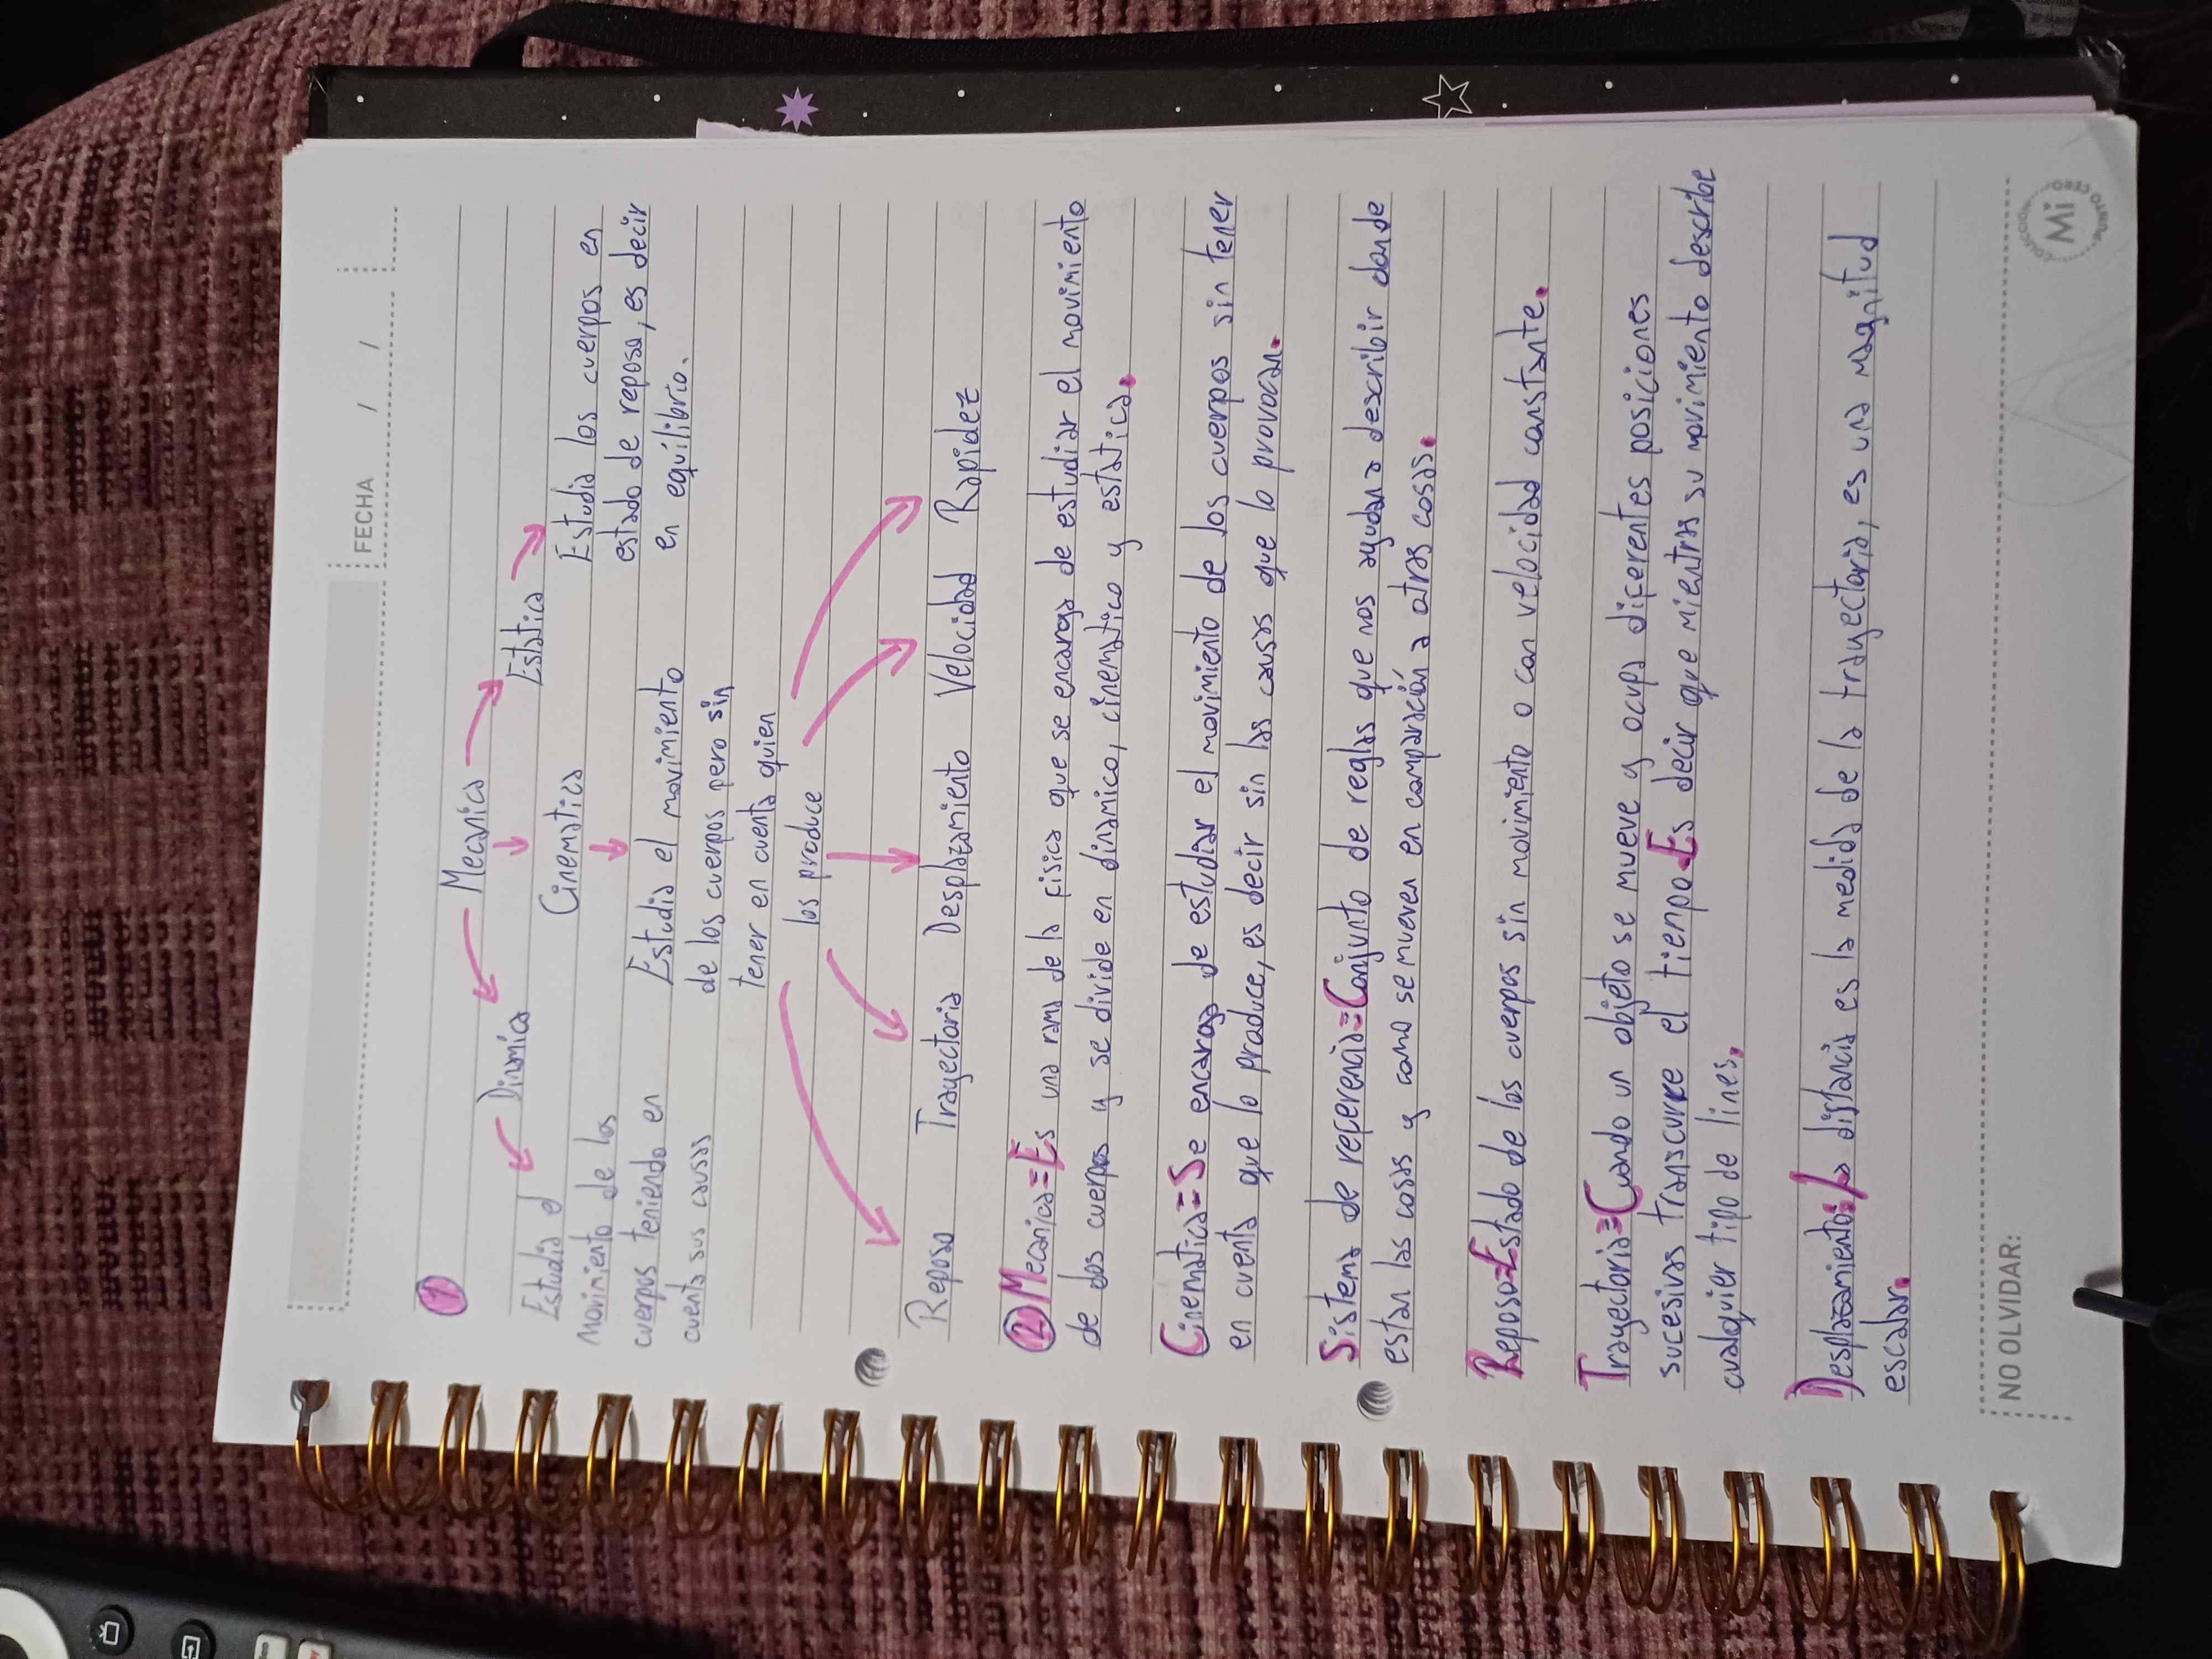 FECHA / /
1 Mecanica
Dinamica
Cinematica
Estatica
Estudia el
movimiento de los
cuerpos teniendo en
cuenta sus causas
Estudia el movimiento
de los cuerpos pero sin
tener en cuenta quien
los produce
Estudia los cuerpos en
estado de reposo, es decir
en equilibrio.
Reposo Trayectoria Desplazamiento Velocidad Rapidez
2 Mecanica=Es una rama de la fisica que se encarga de estudiar el movimiento
de los cuerpos y se divide en dinamico, cinematico y estatica.
Cinematica=Se encarga de estudiar el movimiento de los cuerpos sin tener
en cuenta que lo produce, es decir sin las causas que lo provocan.
Sistema de referencia=Conjunto de reglas que nos ayudan a describir donde
estan las cosas y como se mueven en comparación a otras cosas.
Reposo=Estado de los cuerpos sin movimiento o con velocidad constante.
Trayectoria=Cuando un objeto se mueve y ocupa diferentes posiciones
sucesivas transcurre el tiempo.Es decir que mientras su movimiento describe
cualquier tipo de linea.
Desplazamiento:La distancia es la medida de la trayectoria, es una magnitud
escalar.
NO OLVIDAR:
Mi